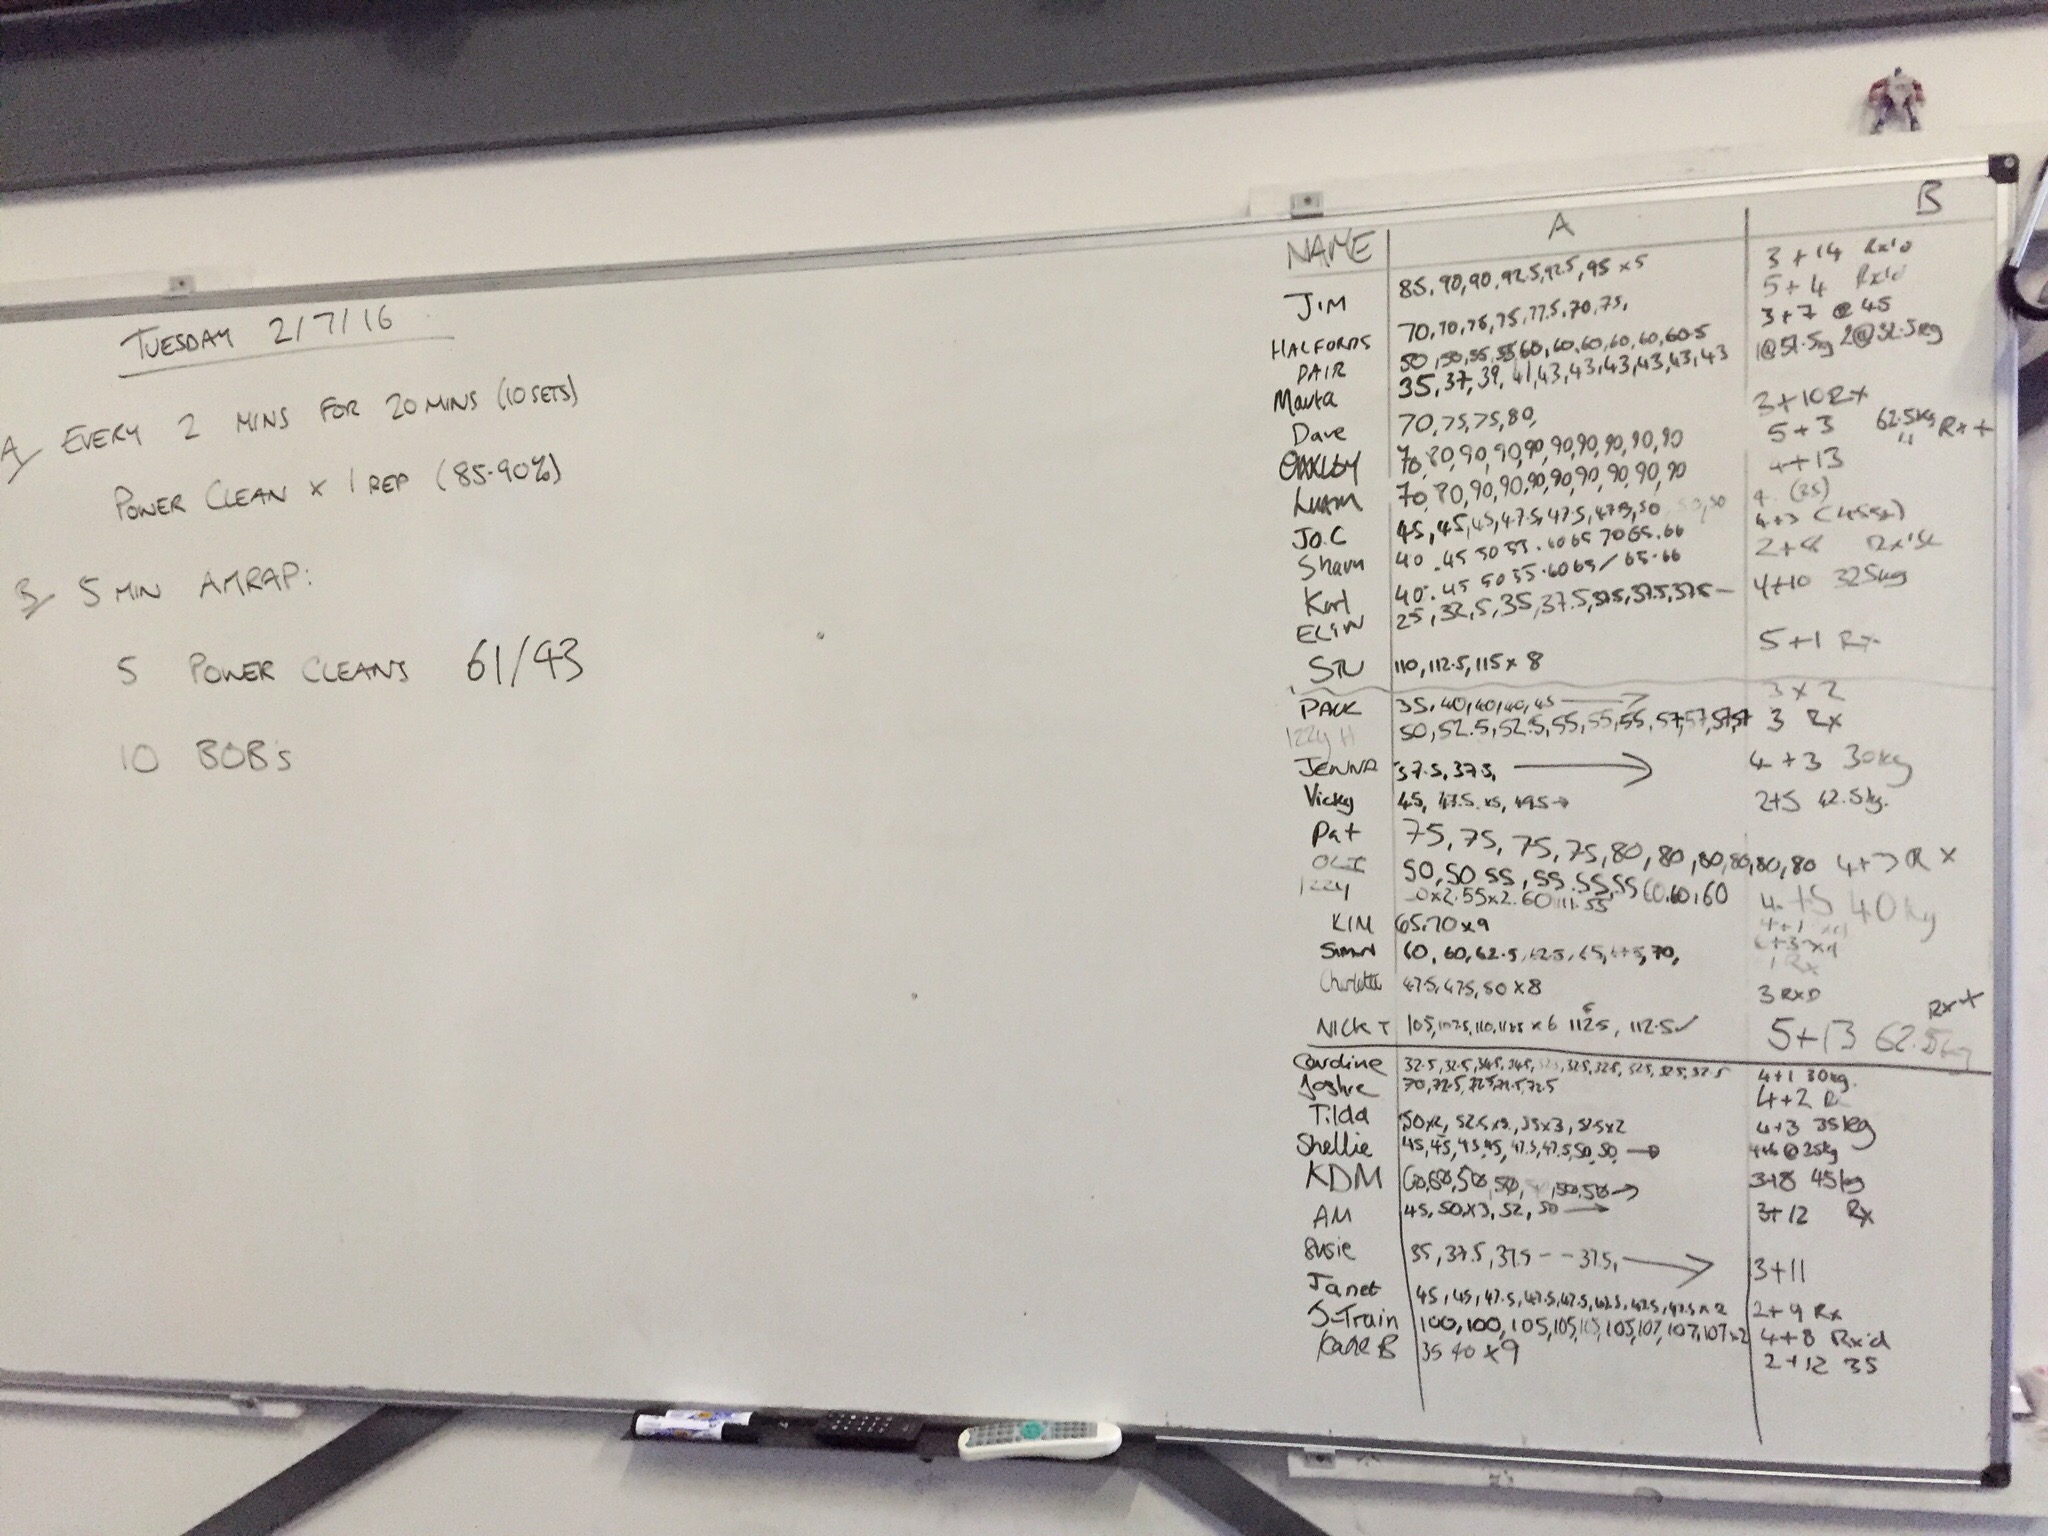 TUESDAY 2/7/16
A/ EVERY 2 MINS FOR 20 MINS (10 SETS)
POWER CLEAN x 1 REP (85-90%)
B/ 5 MIN AMRAP:
5 POWER CLEANS 61/43
10 BOB's
NAME A B
JIM 85, 90, 90, 92.5, 92.5, 95 x 5 3 + 14 Rx'D
HALFORDS 70, 70, 75, 75, 77.5, 70, 75, 5 + 4 Rx'D
DAIR 50, 50, 55, 55, 60, 60, 60, 60, 60, 60.5 3 + 7 @ 45
Marta 35, 37, 39, 41, 43, 43, 43, 43, 43, 43
Dave 70, 75, 75, 80, 3 + 10 Rx
OAKLEY 70, 80, 90, 90, 90, 90, 90, 90, 90, 90 5 + 3 62.5kg Rx +
LIAM 70, 80, 90, 90, 90, 90, 90, 90, 90, 90 4 + 13 "
Jo.C 45, 45, 45, 47.5, 47.5, 47.5, 50 4 (35)
Shaun 40. 45 50 55. 60 65 70 65. 66
Karl 40. 45 50 55. 60 65 / 65. 66 2 + 8
ELIN 25, 32.5, 35, 37.5, 37.5, 37.5, 37.5 - 4 + 10 32.5kg
STU 110, 112.5, 115 x 8 5 + 1 Rx
35, 40, 40, 40, 45 → 3 x 2
Izzy H 50, 52.5, 52.5, 55, 55, 55, 57, 57, 57, 57 3 Rx
JENNA 37.5, 37.5, → 4 + 3 30kg
Vicky 45, 47.5 x5, 49.5 → 2+5 42.5kg.
Pat 75, 75, 75, 75, 80, 80, 80, 80, 80, 80 4 + 3 Rx
50, 50 55, 55 55, 55 60, 60, 60
Izzy 4 + 5 40kg
KIM 65, 70 x 9 4+1
Simon 60, 60, 62.5, 62.5, 65, 70,
Charlotte 47.5, 47.5, 50 x 8 3 RxD
NICK T 105, 107.5, 110, x 6 112.5, 112.5 ✓ 5 + 13 62.5kg Rx+
Caroline 32.5, 32.5, 34.5, 34.5, 32.5, 32.5, 32.5, 32.5, 32.5 4+1 30kg.
70, 72.5, 72.5, 72.5, 72.5 4+2 R
Tilda 50x2, 52.5 x 2, 55 x 3, 52.5 x 2 4+3 35kg
Shellie 45, 45, 45, 45, 47.5, 47.5, 50, 50, → 4+6 @ 25kg
KDM 60, 60, 50, 50, 50, 50 → 3+8 45kg
AM 45, 50 x 3, 52, 50 → 3+12 Rx
Susie 35, 37.5, 37.5 - - 37.5, → 3+11
Janet 45, 45, 47.5, 47.5, 47.5, 42.5, 42.5, 47.5 x 2 2+9 Rx
J-Train 100, 100, 105, 105, 105, 105, 107, 107, 107 x 2 4+8 Rx'd
B 35 40 x 9 2+12 35